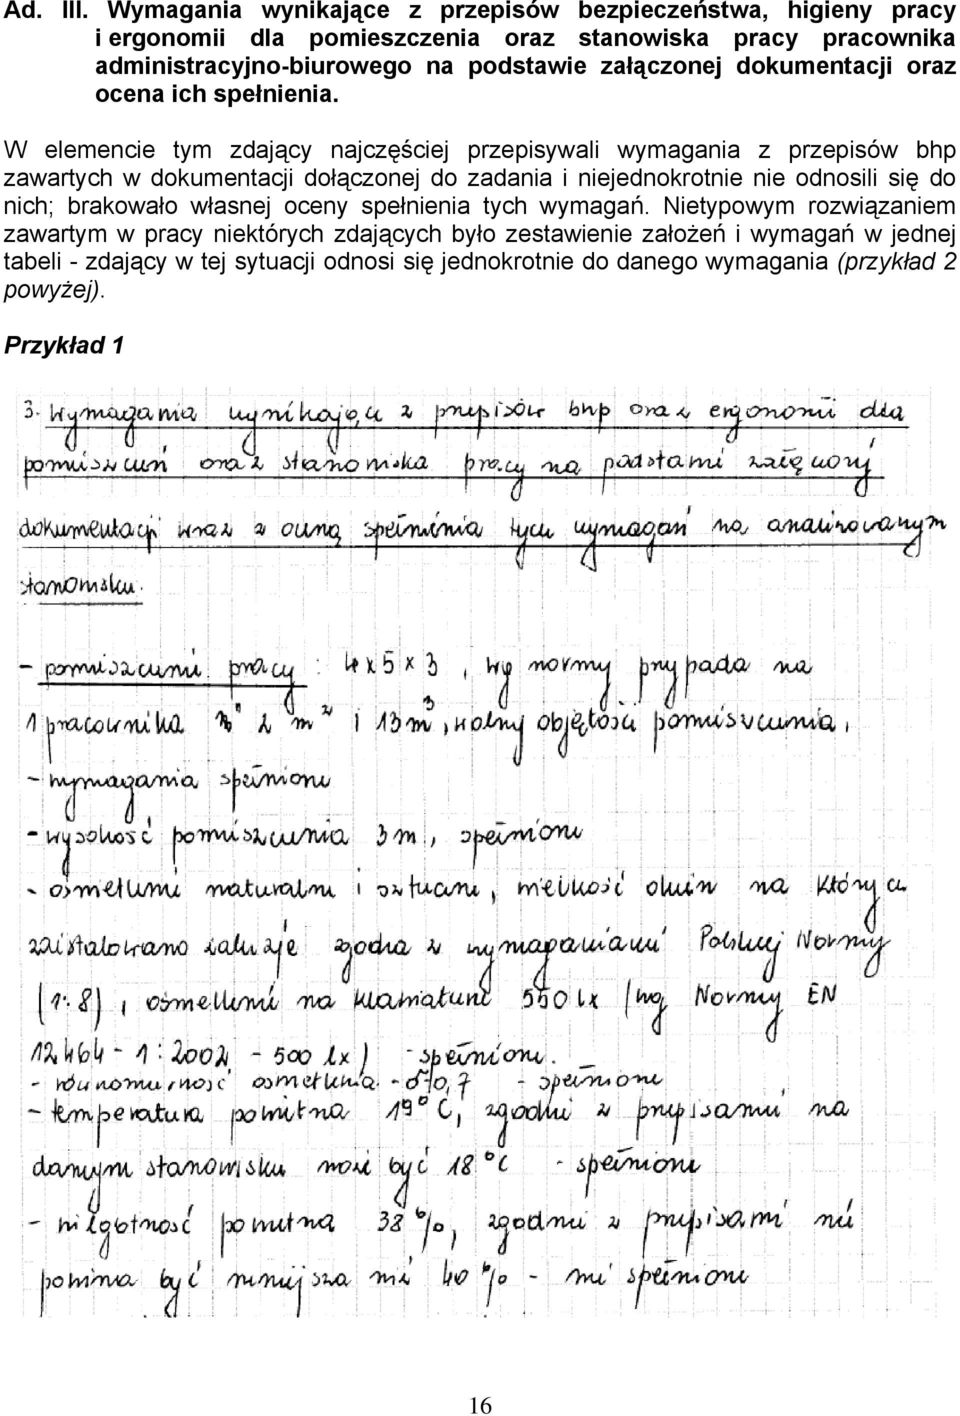 Ad. III. Wymagania wynikające z przepisów bezpieczeństwa, higieny pracy
i ergonomii dla pomieszczenia oraz stanowiska pracy pracownika
administracyjno-biurowego na podstawie załączonej dokumentacji oraz
ocena ich spełnienia.
W elemencie tym zdający najczęściej przepisywali wymagania z przepisów bhp
zawartych w dokumentacji dołączonej do zadania i niejednokrotnie nie odnosili się do
nich; brakowało własnej oceny spełnienia tych wymagań. Nietypowym rozwiązaniem
zawartym w pracy niektórych zdających było zestawienie założeń i wymagań w jednej
tabeli - zdający w tej sytuacji odnosi się jednokrotnie do danego wymagania (przykład 2
powyżej).
Przykład 1
3. Wymagania wynikające z przepisów bhp oraz ergonomii dla
pomieszczeń oraz stanowiska pracy na podstawie załączonej
dokumentacji wraz z oceną spełnienia tych wymagań na analizowanym
stanowisku.
- pomieszczenie pracy : 4x5x3, wg normy przypada na
1 pracownika 2 m² i 13m³, wolnej objętości pomieszczenia,
- wymagania spełnione
- wysokość pomieszczenia 3m, spełnione
- oświetlenie naturalne i sztuczne, wielkość okien na których
zaistalowano żaluzje zgodna z wymaganiami Polskiej Normy
(1:8), oświetlenie na klawiaturze 550 lx (wg Normy EN
12464-1:2002 - 500 lx) - spełnione.
- równomierność oświetlenia - 0,7 - spełnione
- temperatura powietrza 19°C, zgodnie z przepisami na
danym stanowisku może być 18°C - spełnione
- wilgotność powietrza 38%, zgodnie z przepisami nie
powinna być mniejsza niż 40% - nie spełnione
16